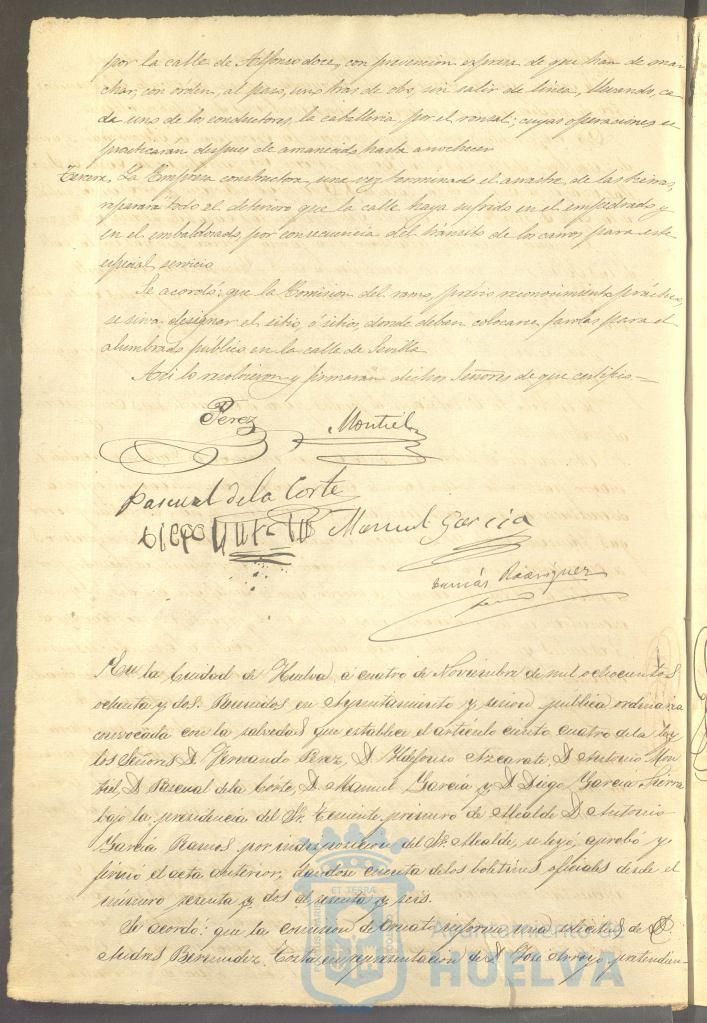 por la calle de Alfonso doce, con prevencion espresa de que han de mar
char, con orden, al paso, uno tras de otro, sin salir de linea, llevando, ca-
da uno de los conductores, la caballeria por el ronzal; cuyas operaciones se
practicaran despues de amanecido hasta anochecer
Tercera. La Empresa constructora, una vez terminado el arrastre de las tierras,
reparará todo el deterioro que la calle haya sufrido en el empedrado y
en el embaldosado, por consecuencia del tránsito de los carros para este
especial servicio
Se acordó: que la Comision del ramo, prévio reconocimiento práctico,
se sirva designar el sitio, ó sitios, donde deban colocarse farolas para el
alumbrado publico en la calle de Sevilla
Asi lo resolvieron y firmaran dichos Señores de que certifico.=
Perez Montiel
Pascual de la Corte
Diego Manuel Garcia
Rodriguez
En la Ciudad de Huelva á cuatro de Noviembre de mil ochocientos
ochenta y dos. Reunidos en Ayuntamiento y sesion publica ordinaria
convocada con la salvedad que establece el articulo ciento cuatro de la Ley
los Señores D. Fernando Perez, D. Ildefonso Azcarate, D. Antonio Mon
tiel, D. Pascual de la Corte, D. Manuel García y D. Diego García Sierra
bajo la presidencia del Sr. Teniente primero de Alcalde D. Antonio
García Ramos por indisposicion del Sr. Alcalde, se leyó, aprobó y
firmó el acta anterior, dandose cuenta de los boletines oficiales desde el
numero sesenta y dos al sesenta y seis.
Se acordó: que la comision de Ornato informe una solicitud de D.
Andres Bermudez en representacion de D. José Arroyo, pretendien-
Ayuntamiento de
HUELVA